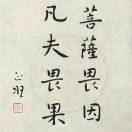 菩薩畏因
凡夫畏果